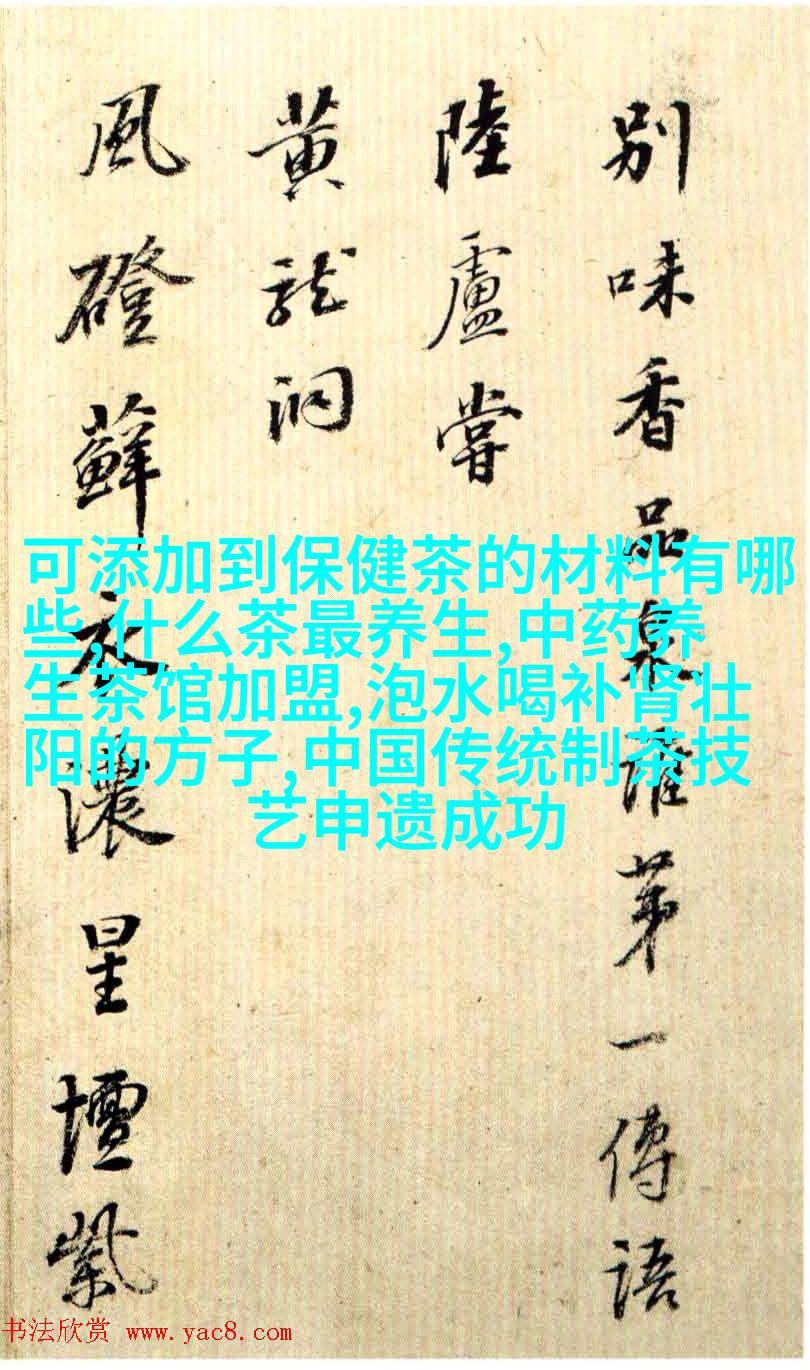 别味香品泉谁第一传语
陸盧嘗
黄龍洞
風磴蘚衣濃星壇紫
可添加到保健茶的材料有哪
些,什么茶最养生,中药养
生茶馆加盟,泡水喝补肾壮
阳的方子,中国传统制茶技
艺申遗成功
书法欣赏 www.yac8.com